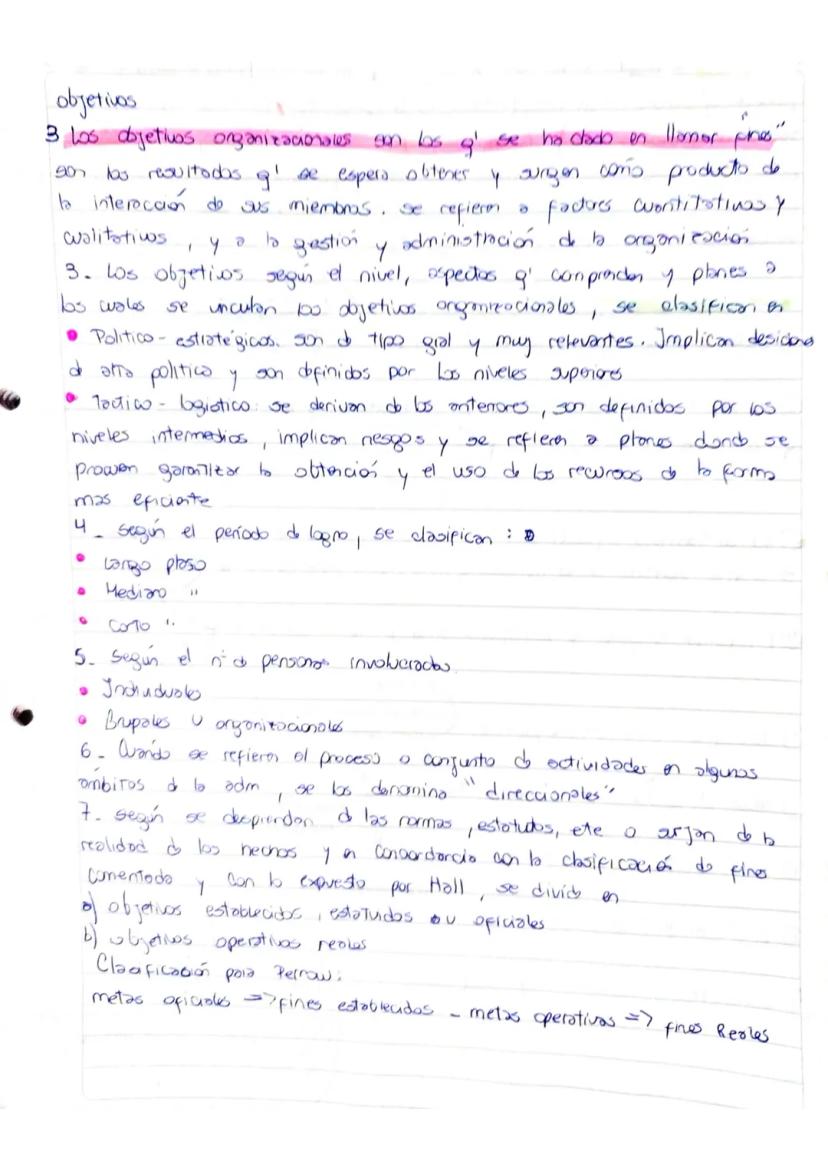 objetivos
3 Los objetivos organizacionales son los q' se ha dado en llamar "fines"
son los resultados q' se espera obtener y surgen como producto de
la interacción de sus miembros. se refieren a factores cuantitativos y
cualitativos, y a la gestión y administración de la organización
3. Los objetivos según el nivel, aspectos q' comprenden y planes a
los cuales se vinculan los objetivos organizacionales, se clasifican en
• Politico - estratégicos. son d tipo gral y muy relevantes. Implican desiciones
d alta politica y son definidos por los niveles superiores
• Tactico - logistico: se derivan de los anteriores, son definidos por los
niveles intermedios, implican riesgos y se refieren a planes donde se
procuran garantizar la obtención y el uso de los recursos de la forma
mas eficiente
4 - según el período d logro, se clasifican :
• Largo plaso
• Mediano "
• Corto "
5- Según el n° d personas involucradas
• Individuales
• Grupales u organizacionales
6 - Cuando se refieren al proceso o conjunto de actividades en algunos
ámbitos d la adm, se los denomina "direccionales"
7. según se desprendan d las normas, estatudos, ete o surjan de la
realidad d los hechos y en concordancia con la clasificación de fines
comentado y con lo expuesto por Hall, se divide en
a) objetivos establecidos, estatudos u oficiales
b) objetivos operativos reales
Clasificación para Perrow:
metas oficiales => fines establecidos - metas operativas => fines Reales